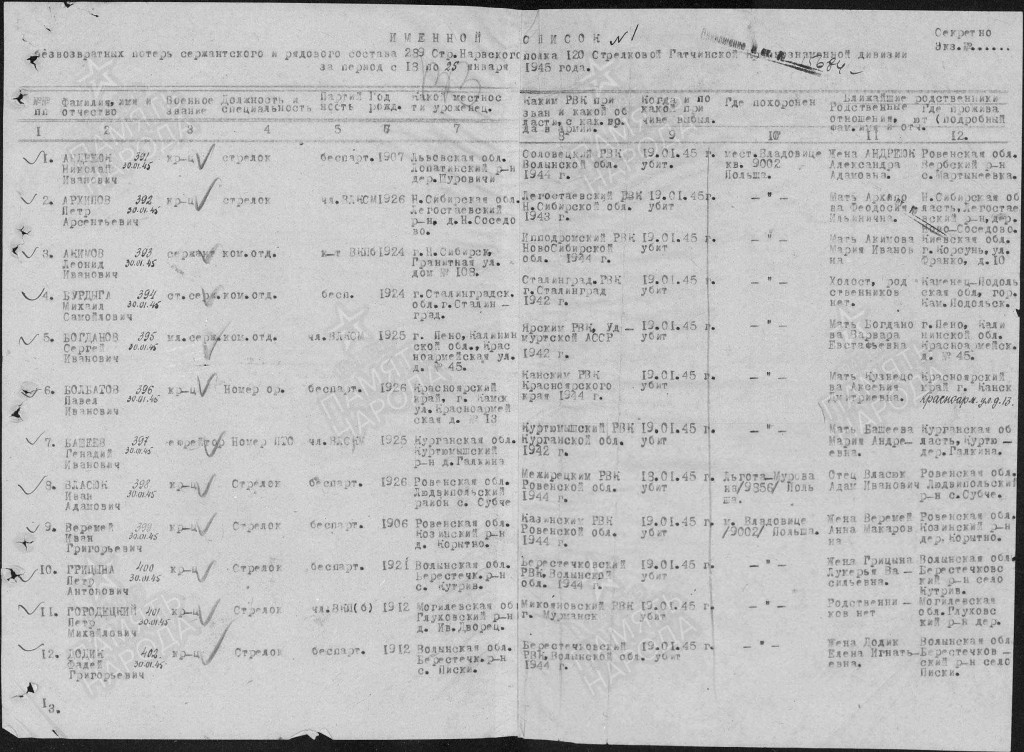 Секретно
Экз.№......
ИМЕННОЙ СПИСОК №1
безвозвратных потерь сержантского и рядового состава 289 Стр.Нарвского полка 120 Стрелковой Гатчинской Краснознаменной дивизии
за период с 13 по 25 января 1945 года.
№№ пп Фамилия, имя и отчество Военное звание Должность и специальность Партийность Год рожд. Какой местности уроженец. Каким РВК призван и какой области, с как. вр. да в армии. Когда и по какой причине выбыл. Где похоронен Ближайшие родственники
Родственные отношения, фам.имя и отч. Где проживают (подробный
1 2 3 4 5 6 7 8 9 10 11 12.
1. АНДРЕЮК 391 кр-ц стрелок беспарт. 1907 Львовская обл. Соловецкий РВК 19.01.45 г. мест.Владовице Жена АНДРЕЮК Ровенская обл.
Николай 30.01.45 Лопатинский р-н Волынской обл. убит кв. 9002 Александра Вербский р-н
Иванович дер.Щуровичи 1944 г. Польша. Адамовна. с.Мартынеевка.
2. АРХИПОВ 392 кр-ц стрелок чл.ВЛКСМ 1926 Н.Сибирская обл. Легостаевский РВК 19.01.45г. -"- Мать Архипо Н.Сибирская об
Петр 30.01.45 Легостаевский Н.Сибирской обл. убит ва Феодосия ласть,Легостае
Арсентьевич р-н, д.Н.Соседо 1943 г. Ильинична вский р-н,дер.
во. Ново-Соседово.
3. АКИМОВ 393 сержант ком.отд. к-т ВКПб 1924 г.Н.Сибирск, Ипподромский РВК 19.01.45 г. -"- Мать Акимова Киевская обл.
Леонид 30.01.45 Гранитная ул. НовоСибирской убит Мария Иванов г.Корсунь,ул.
Иванович дом № 108. обл. 1944 г. на Франко, д.10
4. БУРДЫГА 394 ст.серж. ком.отд. бесп. 1924 г.Сталинградск. Сталинград.РВК 19.01.45 г. -"- Холост, род Каменец-Подоль
Михаил 30.01.45 обл.г.Сталин- г.Сталинград убит ственников ская обл. гор.
Самойлович град. 1942 г. нет. Кам.Подольск.
5. БОГДАНОВ 395 мл.серж. ком.отд. чл.ВЛКСМ 1925 г.Пено,Калинин Ярским РВК, Уд- 19.01.45 г. -"- Мать Богдано г.Пено, Кали
Сергей 30.01.45 ской обл., Крас муртской АССР убит ва Варвара нинской обл.
Иванович ноармейская ул. 1942 г. Евстафьевна Красноармейск.
д. № 45. д. № 45.
6. БОЛБАТОВ 396 кр-ц Номер ор. беспарт. 1926 Красноярский Канским РВК 19.01.45 г. -"- Мать Кузнецо Красноярский
Павел 30.01.45 край, г. Камск Красноярского убит ва Аксения край г. Канск
Иванович ул.Красноармей края 1944 г. Дмитриевна. Красноарм.ул.д.13.
ская д.№ 13
7. БАШЕЕВ 397 ефрейтор Номер ПТО чл.ВЛКСМ 1925 Курганская обл. Куртюмышский РВК 19.01.45 г. -"- Мать Башеева Курганская об
Генадий 30.01.45 Куртюмышский Курганской обл. убит Мария Андре- ласть, Куртю-
Иванович р-н д.Галкина 1942 г. евна. дер.Галкина.
8. ВЛАСЮК 398 кр-ц Стрелок беспарт. 1926 Ровенская обл. Межирецким РВК 18.01.45 г. Льгота-Мурова Отец Власюк Ровенская обл.
Иван 30.01.45 Людвипольский Ровенской обл. убит на/9356/ Поль Адам Иванович Людвипольский
Адамович район с. Субче 1944 г. ша. р-н с.Субче.
9. Веремей 399 кр-ц Стрелок беспарт. 1906 Ровенская обл. Казинским РВК 19.01.45 г. м. Владовице Жена Веремей Ровенская обл.
Иван 30.01.45 Козинский р-н Ровенской обл. убит /9002/ Польша. Анна Макаров Козинский р-н
Григорьевич д. Корытно. 1944 г. на дер.Корытно.
10. ГРИЦЫНА 400 кр-ц Стрелок беспарт. 1921 Волынская обл. Берестечковский 19.01.45 г. -"- Жена Грицына Волынская обл.
Петр 30.01.45 Берестечк.р-н РВК,Волынской убит Лукерья Ва- Берестечковс
Антонович с. Кутрив. обл. 1944 г. сильевна. кий р-н село
Кутрив.
11. ГОРОДЕЦКИЙ 401 кр-ц Стрелок чл.ВКП(б) 1912 Могилевская об Микояновский РВК 19.01.45 г. -"- Родственни- Могилевская
Петр 30.01.45 Глуховский р-н г. Мурманск убит ков нет обл.Глуховс
Михайлович д. Ив.Дворец. кий р-н дер.
12. ЛОДИК 402 кр-ц Стрелок беспарт. 1912 Волынская обл. Берестечковский 19.01.45 г. -"- Жена Лодик Волынская обл.
Фадей 30.01.45 Берестечк.р-н РВК,Волынской обл. убит Елена Игнать- Берестечков-
Григорьевич с. Писки. 1944 г. евна. ский р-н село
Писки.
13.
ПАМЯТЬ НАРОДА